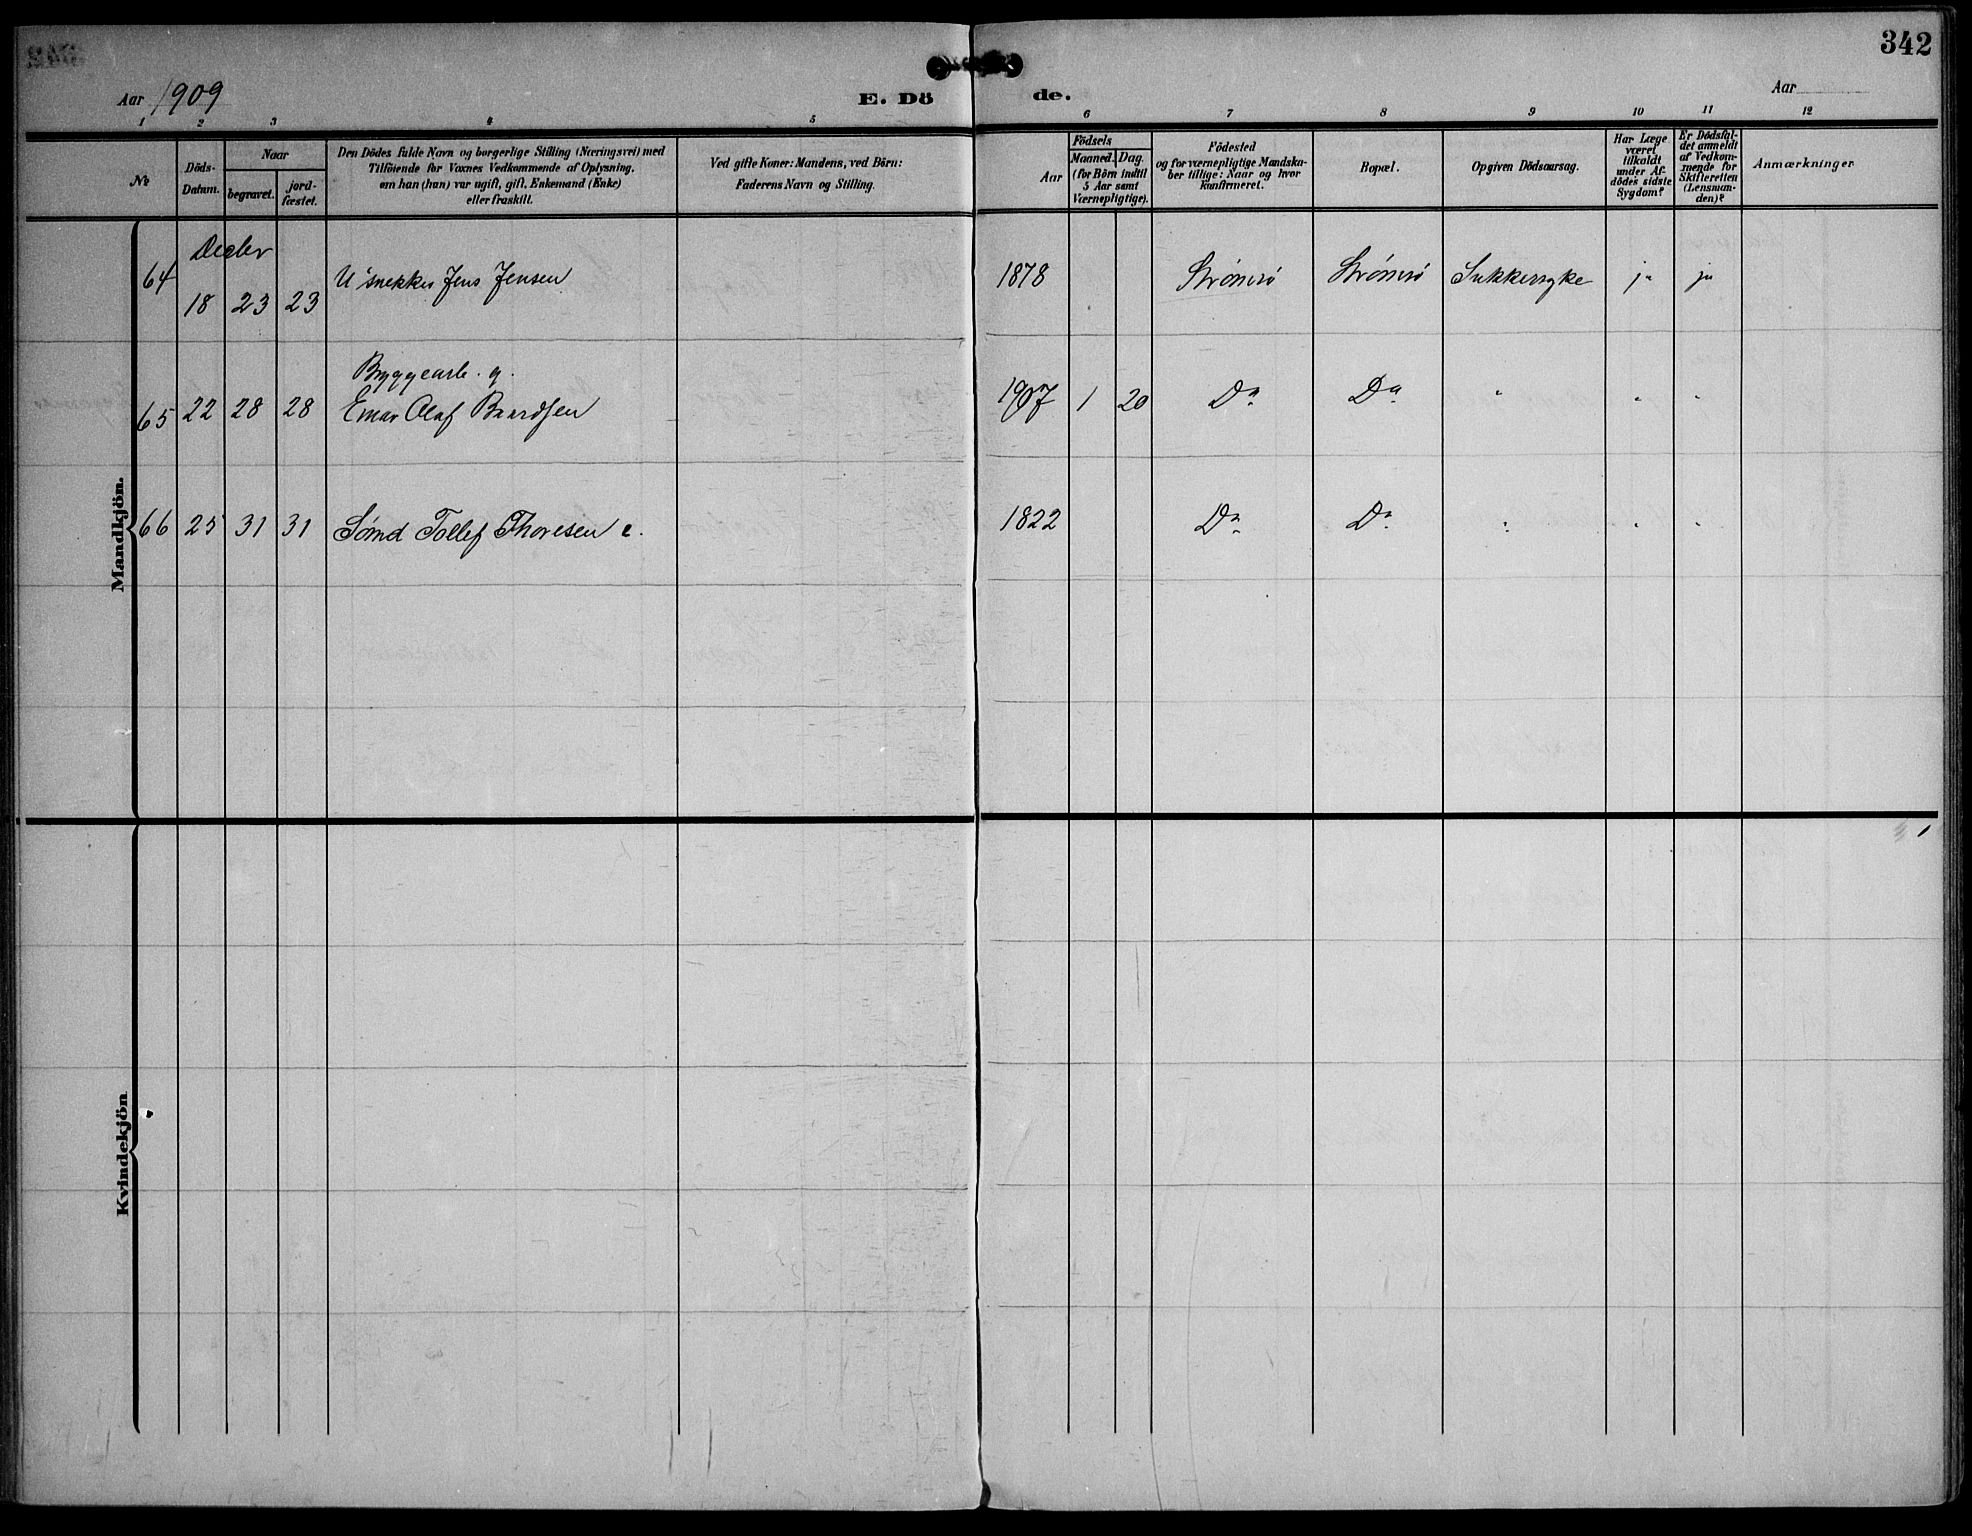 342
Aar 1909
E. Dö
de.
Aar
1 2 3 4 5 6 7 8 9 10 11 12
№
Döds-
Datum.
Naar
begravet.
jord-
fæstet.
Den Dödes fulde Navn og borgerlige Stilling (Næringsvei) med
Tilföiende for Voxnes Vedkommende af Oplysning,
om han (hun) var ugift, gift, Enkemand (Enke)
eller fraskilt.
Ved gifte Koner: Mandens, ved Börn:
Faderens Navn og Stilling.
Födsels
Aar
Maaned.
Dag.
(for Börn indtil
5 Aar samt
Værnepligtige).
Födested
og for værnepligtige Mandska-
ber tillige: Naar og hvor
konfirmeret.
Bopæl.
Opgiven Dödsaarsag.
Har Læge
været
tilkaldt
under Af-
dödes sidste
Sygdom?
Er Dödsfal-
det anmeldt
af Vedkom-
mende for
Skifteretten
(Lensman-
den)?
Anmærkninger
Mandkjön.
Decbr
64 18 23 23 U snekker Jens Jensen 1878 Strømsö Strømsö Sukkersyke ja ja
Byggearb. g.
65 22 28 28 Einar Olaf Baardsen 1907 1 20 Do Do " " "
66 25 31 31 Sømd Tollef Thoresen e. 1822 Do Do " " "
Kvindekjön